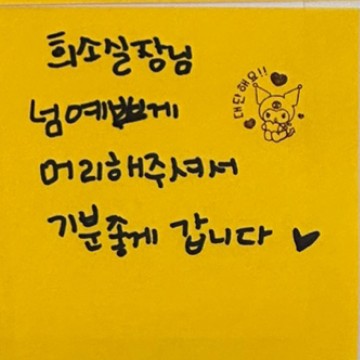 희소실장님
넘예쁘게
머리해주셔서
기분좋게 갑니다
대단해요!!